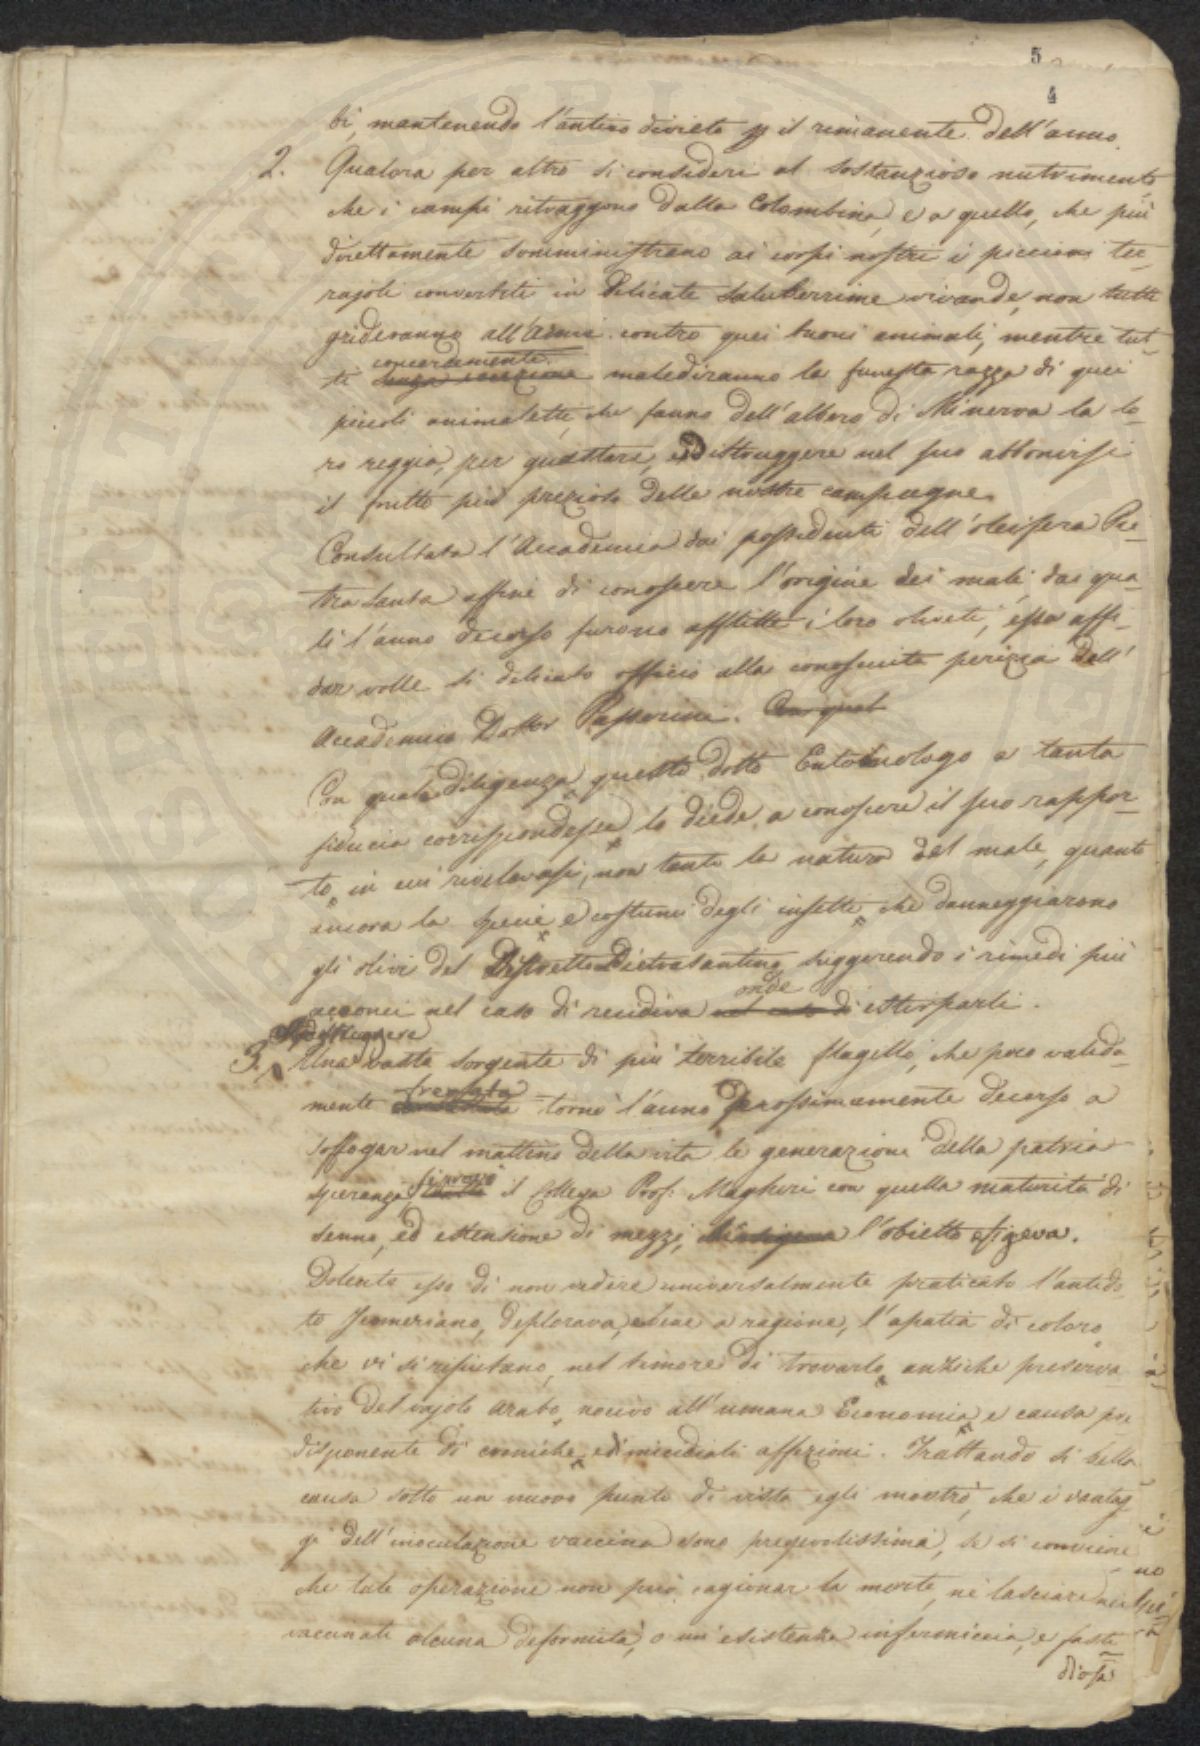 5
4
bi, mantenendo l'antico divieto p il rimanente dell'anno.
2. Qualora per altro si consideri al sostanzioso nutrimento
che i campi ritraggono dalla Colombina, e a quello, che più
direttamente somministrano ai corpi nostri i piccioni ter-
rajoli convertiti in delicate saluberrime vivande, non tutti
grideranno all'armi contro quei buoni animali, mentre tut-
concordamente
ti senza eccezione malediranno la funesta razza di quei
piccoli animaletti, che fanno dell'albero di Minerva la lo-
ro reggia, per guastare, e distruggere nel suo abbonirsi
il frutto più prezioso delle nostre campagne.
Consultata l'Accademia dai possidenti dell'oleifera Pie-
tra Santa affine di conoscere l'origine dei mali, dai qua-
li l'anno decorso furono afflitti i loro oliveti, essa affi-
dar volle sì delicato officio alla conosciuta perizia dell'
Accademico Dottor Passerini. Con qual
Con quale diligenza questo dotto Entomologo a tanta
fiducia corrispondesse, lo diede a conoscere il suo rappor-
to, in cui rivelavasi, non tanto la natura del male, quanto
ancora la specie, e costumi degli insetti, che danneggiarono
gli olivi del Distretto Pietrasantino, suggerendo i rimedi più
onde
acconci nel caso di recidiva nel caso di estirparli.
3. Una vasta sorgente di più terribile flagello, che poco valida-
frenata
mente torno l'anno prossimamente decorso a
soffogar nel mattino della vita le generazioni della patria
speranza, il Collega Prof: Magheri con quella maturità di
senno, ed estensione di mezzi, l'obietto esigeva.
Dolente esso di non vedere universalmente praticato l'antido-
to Jenneriano, deplorava, e bene a ragione, l'apatia di coloro
che vi si rifiutano, nel timore di trovarlo, anziche preserva-
tivo del vajolo arabo, nocivo all'umana Economia, e causa pre
disponente di croniche, ed micidiali affezioni. Trattando sì bella
causa sotto un nuovo punto di vista egli mostrò, che i vantag-
gi dell'inoculazione vaccina sono pregevolissimi, se si conviene
che tale operazione non può cagionar la morte, nè lasciare nei
vaccinati alcuna deformità, o un'esistenza infermiccia, e fasti
diosa